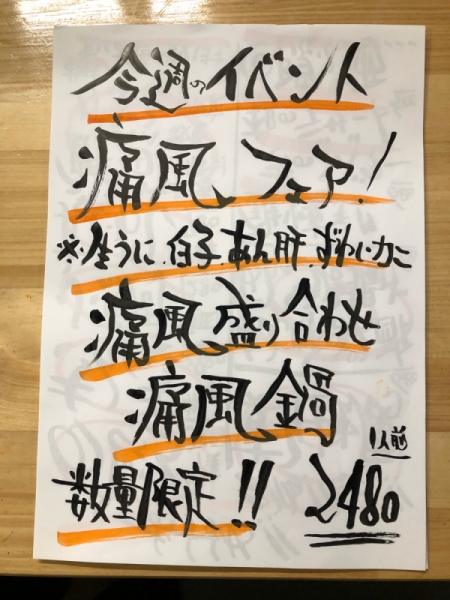 今週のイベント
痛風フェア!
※生うに.白子.あん肝.ずわいカニ
痛風盛り合わせ
痛風鍋
1人前
数量限定!! 2480